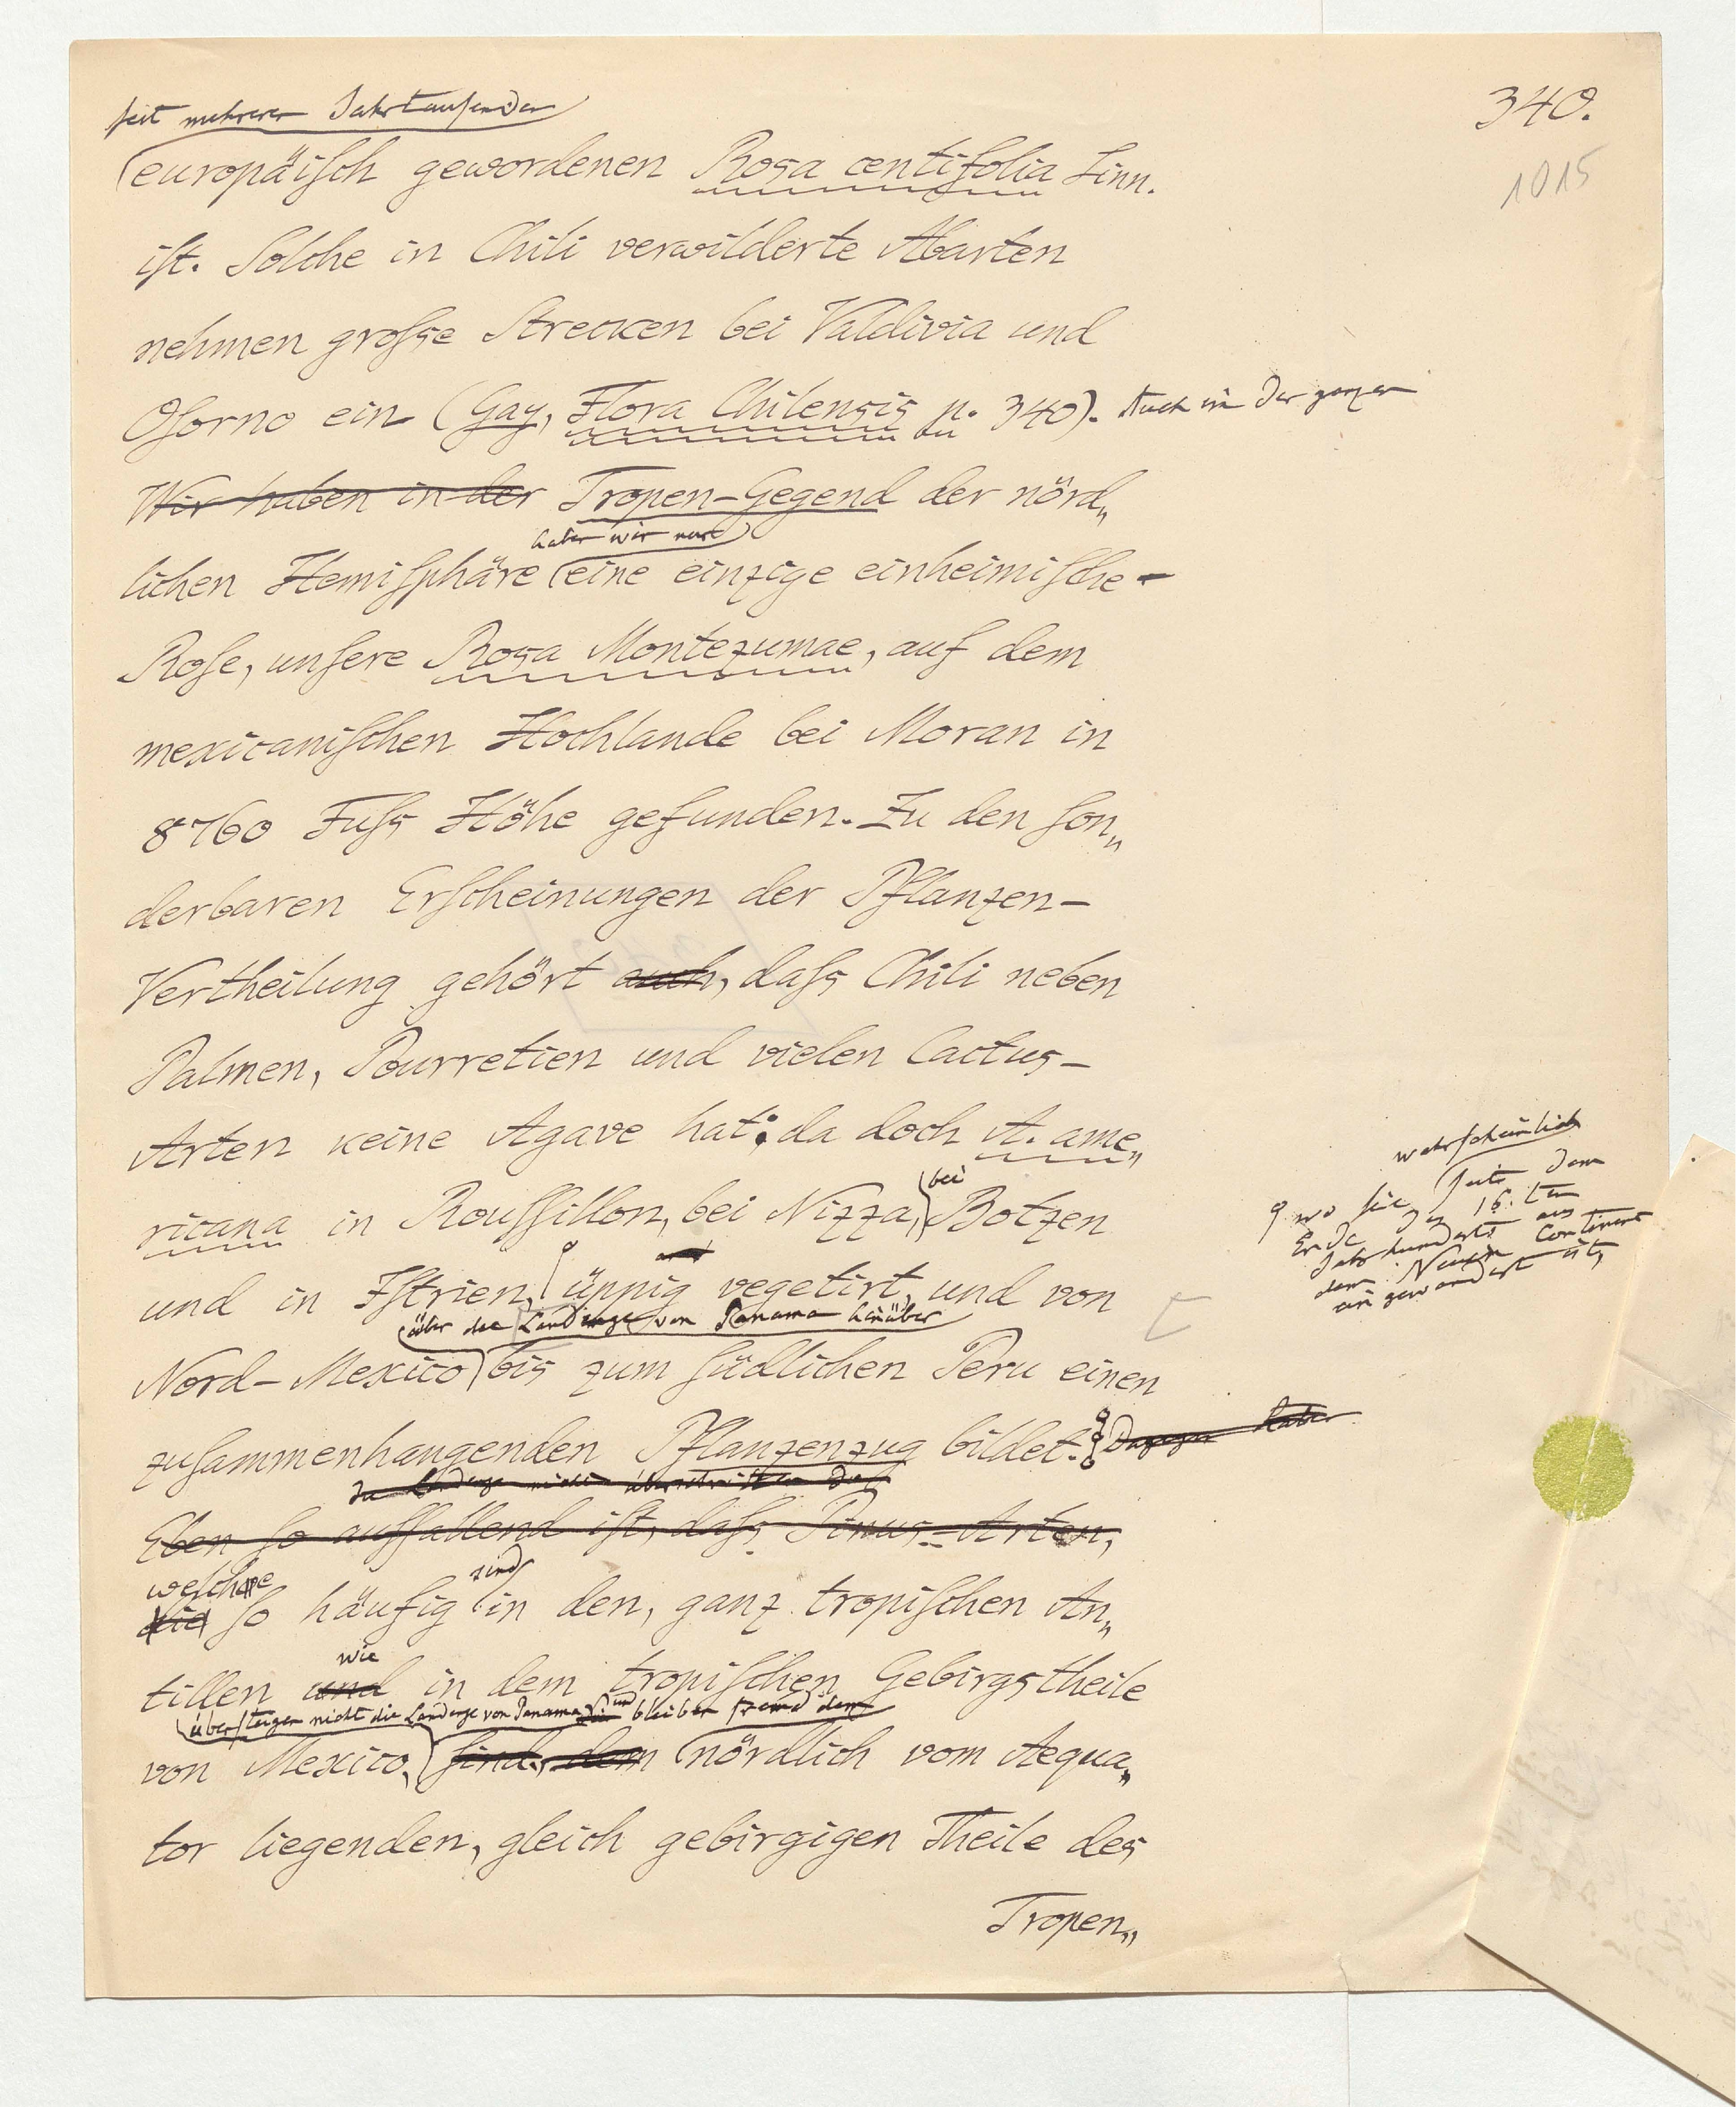 340.
1015
seit mehreren Jahrtausenden
europäiſch gewordenen Rosa centifolia Linn.
iſt. Solche in Chili verwilderte Abarten
nehmen groſse Strecken bei Valdivia und
Oſorno ein (Gay, Flora Chilensis p. 340). Auch in der ganzen
Wir haben in der Tropen-Gegend der nörd„
haben wir nur
lichen Hemiſphäre eine einzige einheimiſche
Roſe, unſere Rosa Montezumae, auf dem
mexicaniſchen Hochlande bei Moran in
8760 Fuſs Höhe gefunden. Zu den ſon„
derbaren Erſcheinungen der Pflanzen-
Vertheilung gehört auch, daſs Chili neben
Palmen, Pourretien und vielen Cactus-
Arten keine Agave hat; da doch A. ame„
bei
ricana in Rouſſillon, bei Nizza, Botzen
und in Iſtrien, üppig vegetirt, und von
wahrſcheinlich
wo ſie ſeit dem
Ende des 16.ten
Jahrhunderts aus
dem Neuen Continent
eingewandert iſt,
über die Landenge von Panama hinüber
Nord-Mexico bis zum ſüdlichen Peru einen
zuſammenhangenden Pflanzenzug bildet. Dagegen haben
die Landenge nicht überschritten die
Eben ſo auffallend iſt, daſs Pinus-Arten,
welche sind
die ſo häufig in den, ganz tropiſchen An„
wie
tillen und in dem tropiſchen Gebirgstheile
überſteigen nicht die Landenge von Panama und bleiben fremd dem
von Mexico, ſind, dem nördlich vom Aequa„
tor liegenden, gleich gebirgigen Theile des
Tropen„